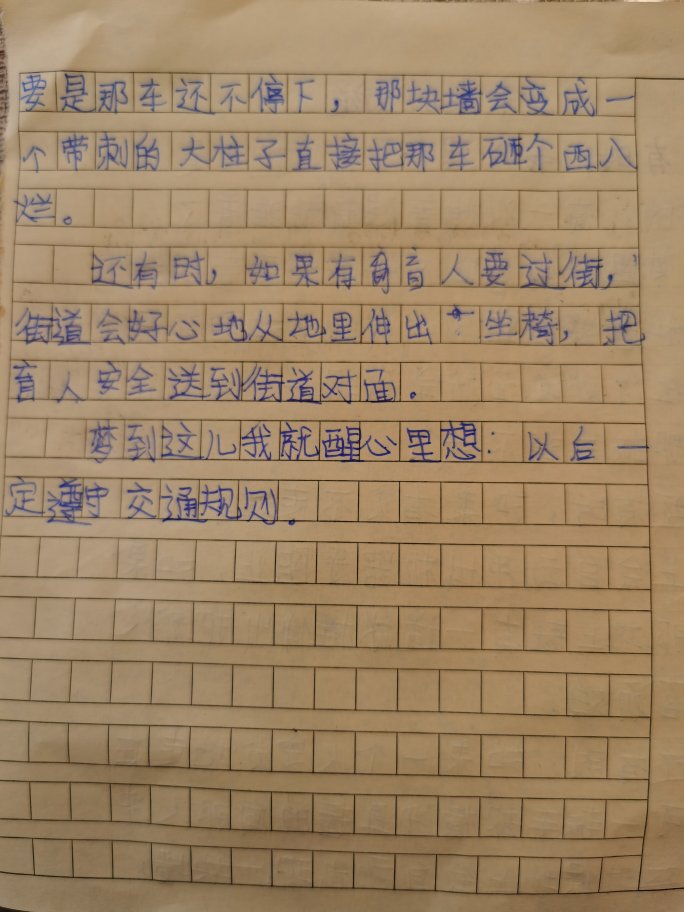 要是那车还不停下，那块墙会变成一
个带刺的大柱子直接把那车砸个西八
烂。
还有时，如果有育音人要过街，
街道会好心地从地里伸出个坐椅，把
育人安全送到街道对面。
梦到这儿我就醒心里想：以后一
定遵守交通规则。